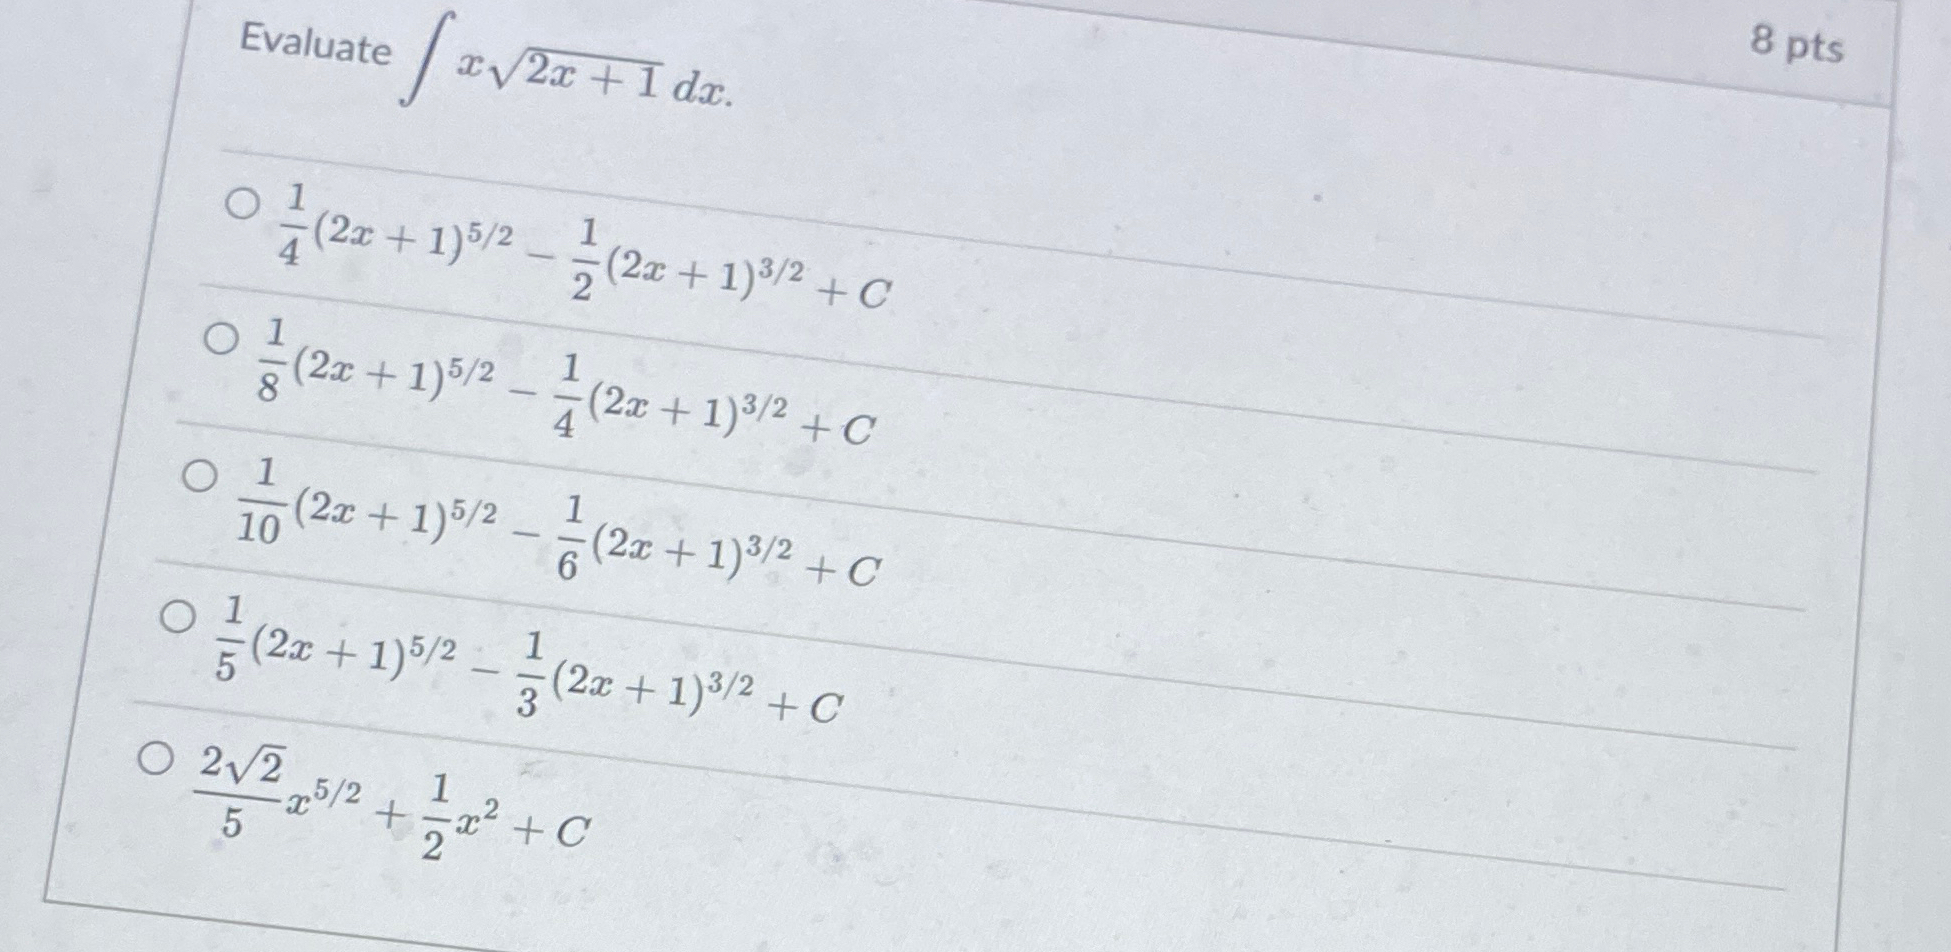 8 pts
Evaluate ∫ x√(2x + 1) dx.
1/4(2x + 1)^5/2 − 1/2(2x + 1)^3/2 + C
1/8(2x + 1)^5/2 − 1/4(2x + 1)^3/2 + C
1/10(2x + 1)^5/2 − 1/6(2x + 1)^3/2 + C
1/5(2x + 1)^5/2 − 1/3(2x + 1)^3/2 + C
2√2/5 x^5/2 + 1/2 x^2 + C